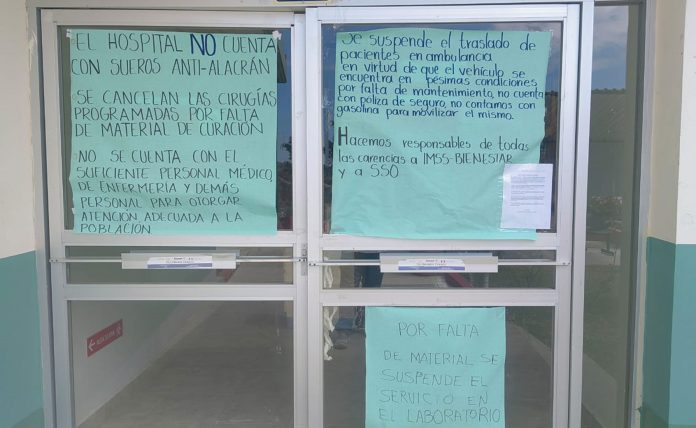 EL HOSPITAL NO CUENTA
CON SUEROS ANTI-ALACRÁN
SE CANCELAN LAS CIRUGÍAS
PROGRAMADAS POR FALTA
DE MATERIAL DE CURACIÓN
NO SE CUENTA CON EL
SUFICIENTE PERSONAL MÉDICO,
DE ENFERMERÍA Y DEMÁS
PERSONAL PARA OTORGAR
ATENCIÓN ADECUADA A LA
POBLACIÓN
Se suspende el traslado de
pacientes en ambulancia
en virtud de que el vehículo se
encuentra en pésimas condiciones
por falta de mantenimiento, no cuenta
con poliza de seguro, no contamos con
gasolina para movilizar el mismo.
Hacemos responsables de todas
las carencias a IMSS-BIENESTAR
y a SSO
POR FALTA
DE MATERIAL SE
SUSPENDE EL
SERVICIO EN
EL LABORATORIO